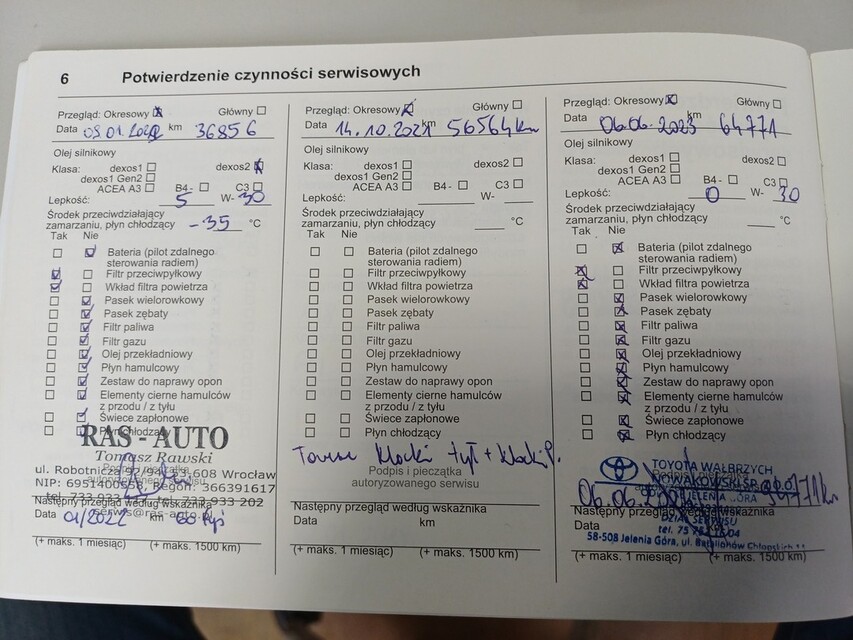 6 Potwierdzenie czynności serwisowych
Przegląd: Okresowy Główny
Data 08.01.202 km 36856
Olej silnikowy
Klasa: dexos1 dexos2
dexos1 Gen2
ACEA A3 B4 - C3
Lepkość: 5 W- 30
Środek przeciwdziałający
zamarzaniu, płyn chłodzący -35 °C
Tak Nie
Bateria (pilot zdalnego
sterowania radiem)
Filtr przeciwpyłkowy
Wkład filtra powietrza
Pasek wielorowkowy
Pasek zębaty
Filtr paliwa
Filtr gazu
Olej przekładniowy
Płyn hamulcowy
Zestaw do naprawy opon
Elementy cierne hamulców
z przodu / z tyłu
Świece zapłonowe
Płyn chłodzący
RAS - AUTO
Tomasz Rawski
ul. Robotnicza 608 Wrocław
NIP: Regon: 366391617
tel. 733 933 tel. 733 933 202
Następny przegląd według wskaźnika
Data 01/2022 km 60
(+ maks. 1 miesiąc) (+ maks. 1500 km)
Przegląd: Okresowy Główny
Data 14.10.2021 km 56564km
Olej silnikowy
Klasa: dexos1 dexos2
dexos1 Gen2
ACEA A3 B4 - C3
Lepkość: W-
Środek przeciwdziałający
zamarzaniu, płyn chłodzący °C
Tak Nie
Bateria (pilot zdalnego
sterowania radiem)
Filtr przeciwpyłkowy
Wkład filtra powietrza
Pasek wielorowkowy
Pasek zębaty
Filtr paliwa
Filtr gazu
Olej przekładniowy
Płyn hamulcowy
Zestaw do naprawy opon
Elementy cierne hamulców
z przodu / z tyłu
Świece zapłonowe
Płyn chłodzący
Tarcze klocki tył + klocki P.
Podpis i pieczątka
autoryzowanego serwisu
Następny przegląd według wskaźnika
Data km
(+ maks. 1 miesiąc) (+ maks. 1500 km)
Przegląd: Okresowy Główny
Data 06.06.2023 km 64771
Olej silnikowy
Klasa: dexos1 dexos2
dexos1 Gen2
ACEA A3 B4 - C3
Lepkość: 0 W- 30
Środek przeciwdziałający
zamarzaniu, płyn chłodzący °C
Tak Nie
Bateria (pilot zdalnego
sterowania radiem)
Filtr przeciwpyłkowy
Wkład filtra powietrza
Pasek wielorowkowy
Pasek zębaty
Filtr paliwa
Filtr gazu
Olej przekładniowy
Płyn hamulcowy
Zestaw do naprawy opon
Elementy cierne hamulców
z przodu / z tyłu
Świece zapłonowe
Płyn chłodzący
TOYOTA WAŁBRZYCH
NOWAKOWSKI SP. Z O.O.
JELENIA GÓRA
06.06. km
Następny przegląd według wskaźnika
Data km
DZIAŁ SERWISU
tel. 75
58-508 Jelenia Góra, ul. Batalionów Chłopskich
(+ maks. 1 miesiąc) (+ maks. 1500 km)